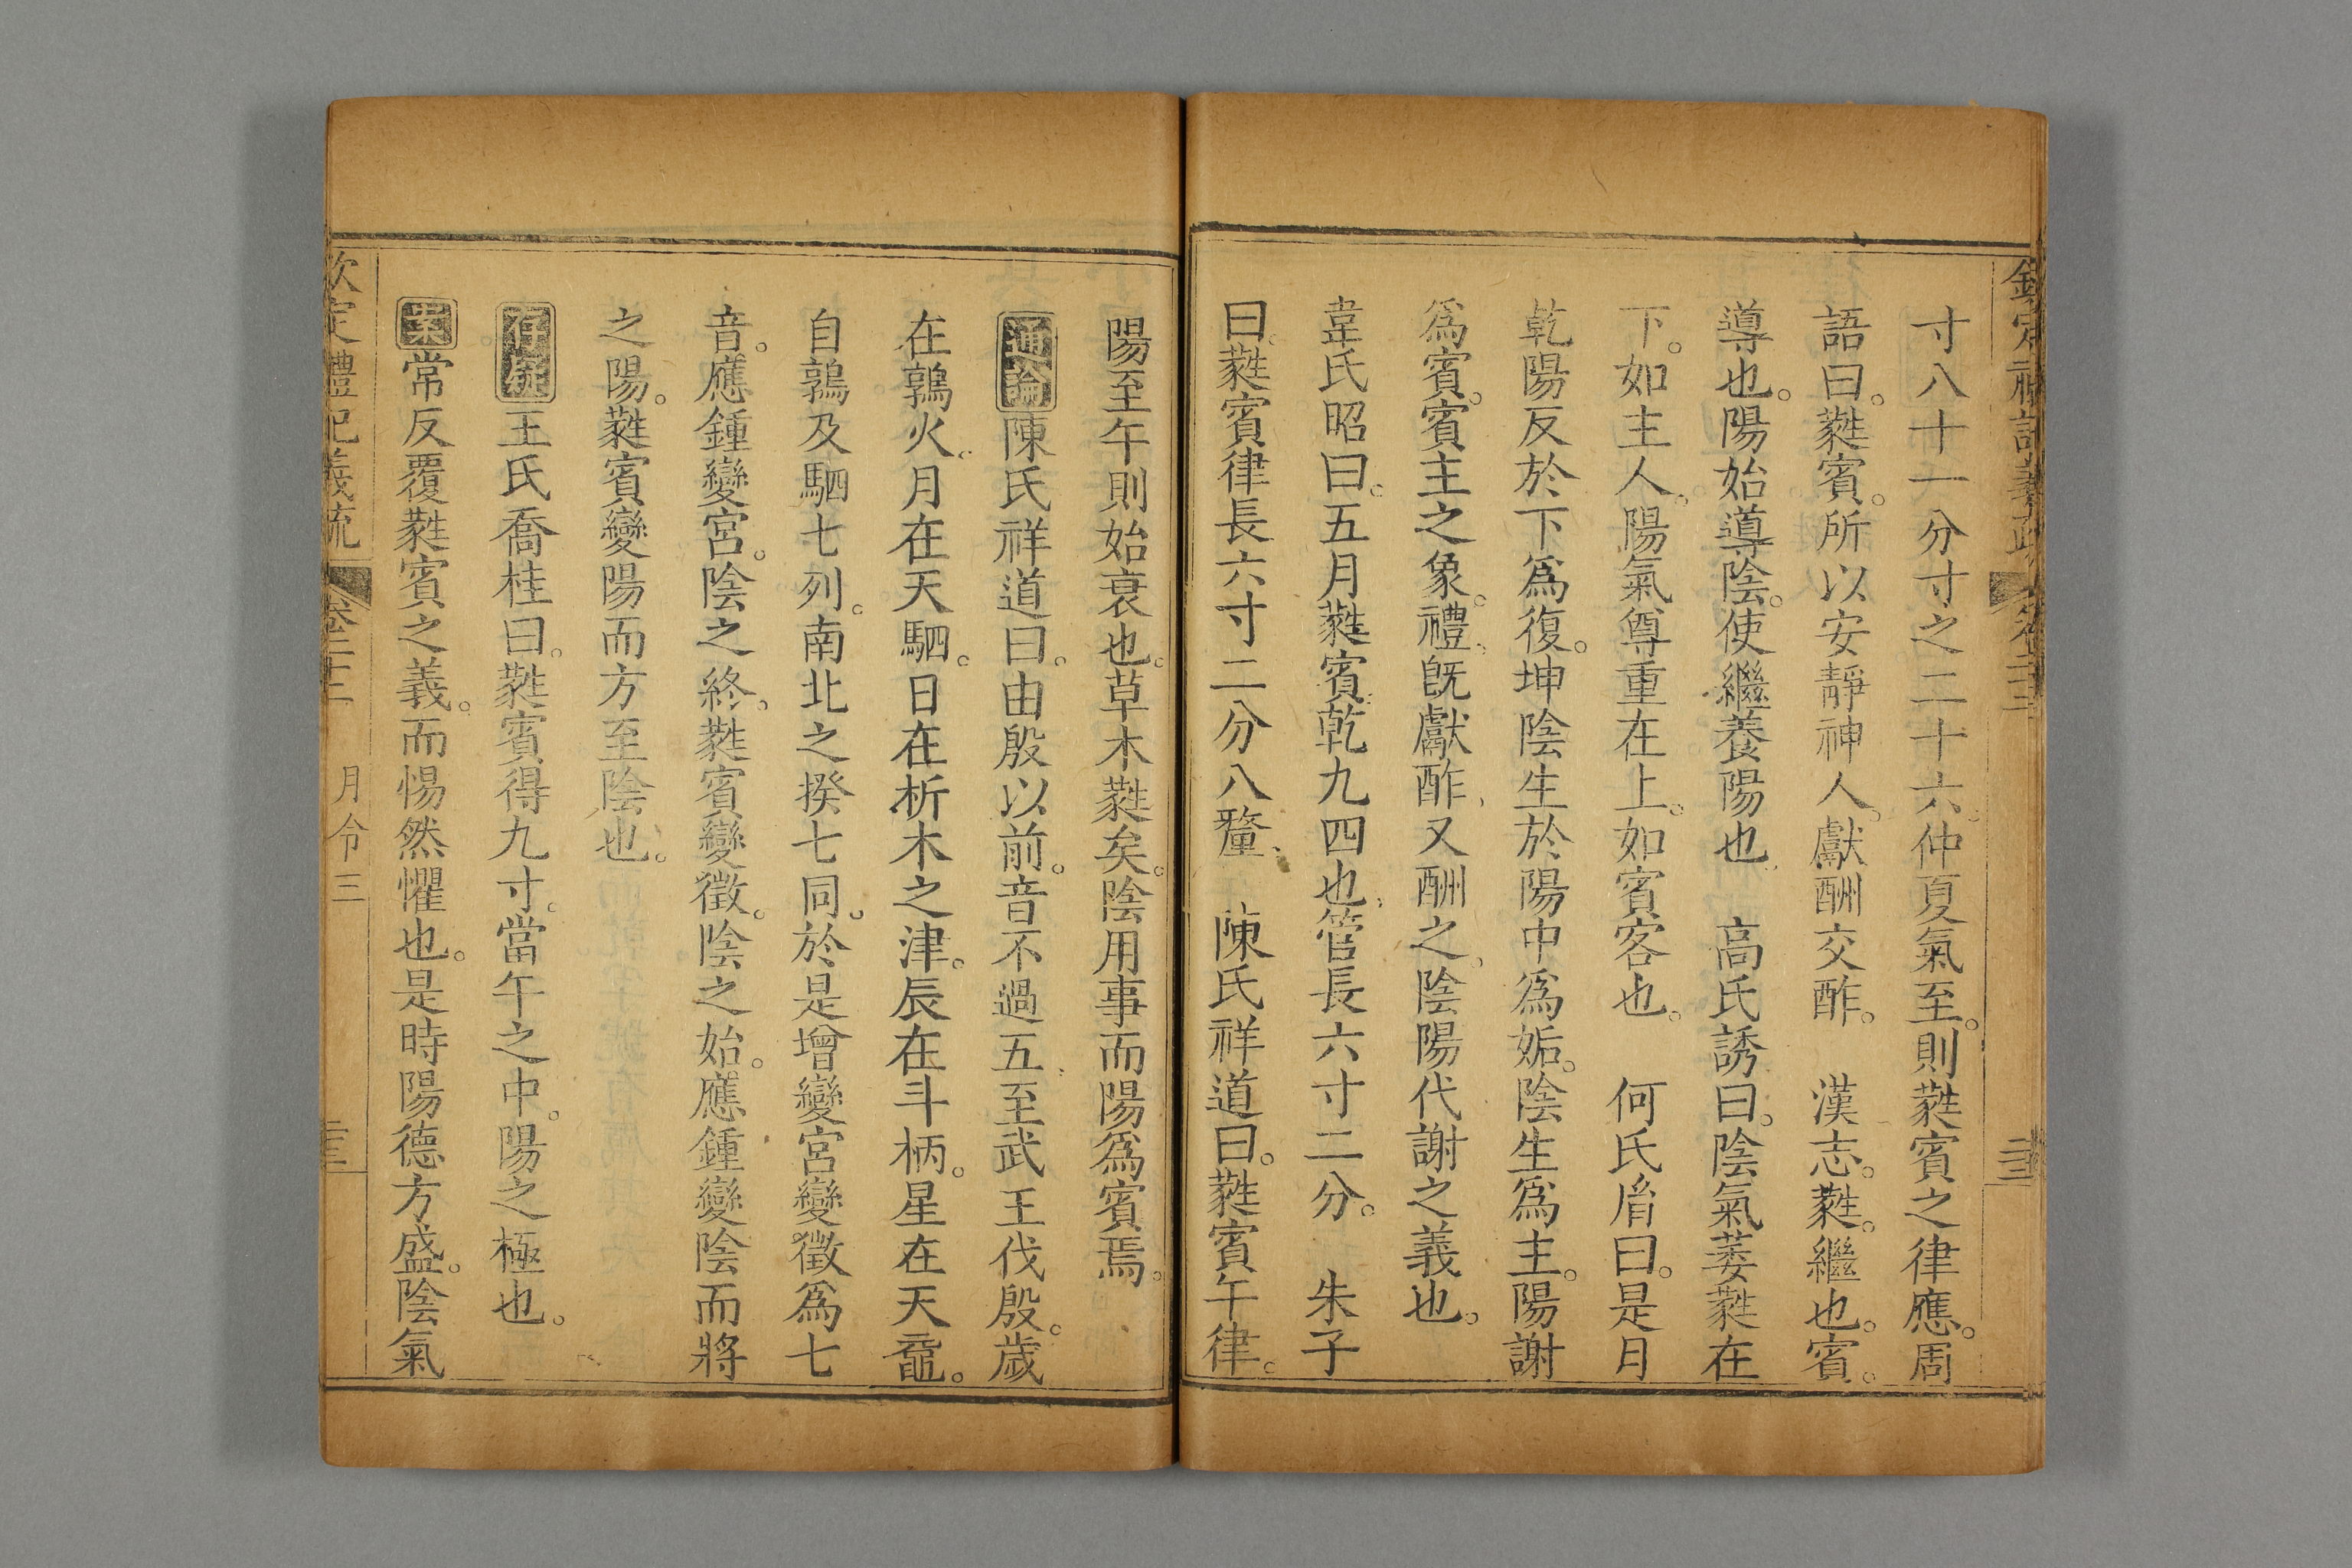 欽定禮記義疏 卷二十二
寸八十一分寸之二十六仲夏氣至。則蕤賓之律應。周
語曰。蕤賓。所以安靜神人、獻酬交酢。 漢志。蕤。繼也。賓。
導也。陽始導陰。使繼養陽也、 高氏誘曰。陰氣萎蕤在
下。如主人。陽氣尊重在上。如賓客也。 何氏胤曰。是月
乾陽反於下爲復。坤陰生於陽中爲姤。陰生爲主。陽謝
爲賓。賓主之象。禮、旣獻酢、又酬之、陰陽代謝之義也。
韋氏昭曰。五月蕤賓乾九四也、管長六寸二分。 朱子
曰。蕤賓律長六寸二分八釐、 陳氏祥道曰。蕤賓午律。
陽至午則始衰也。草木蕤矣。陰用事而陽爲賓焉。
通論陳氏祥道曰。由殷以前。音不過五、至武王伐殷。歲
在鶉火。月在天駟。日在析木之津。辰在斗柄。星在天黿。
自鶉及駟七列。南北之揆七同。於是增變宮變徵爲七
音。應鍾變宮。陰之終。蕤賓變徵。陰之始。應鍾變陰而將
之陽。蕤賓變陽而方至陰也。
存疑王氏喬桂曰。蕤賓得九寸。當午之中。陽之極也。
案常反覆蕤賓之義。而惕然懼也。是時陽德方盛。陰氣
欽定禮記義疏 卷二十二 月令三